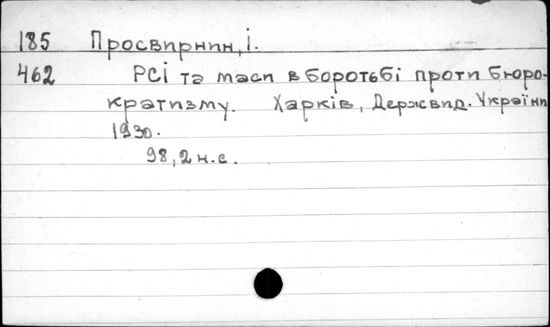 185 Просвирнин, І.
462 РСІ та маси в боротьбі проти бюро-
кратизму. Харків, Держвид. України
1930.
98, 2 н. с.